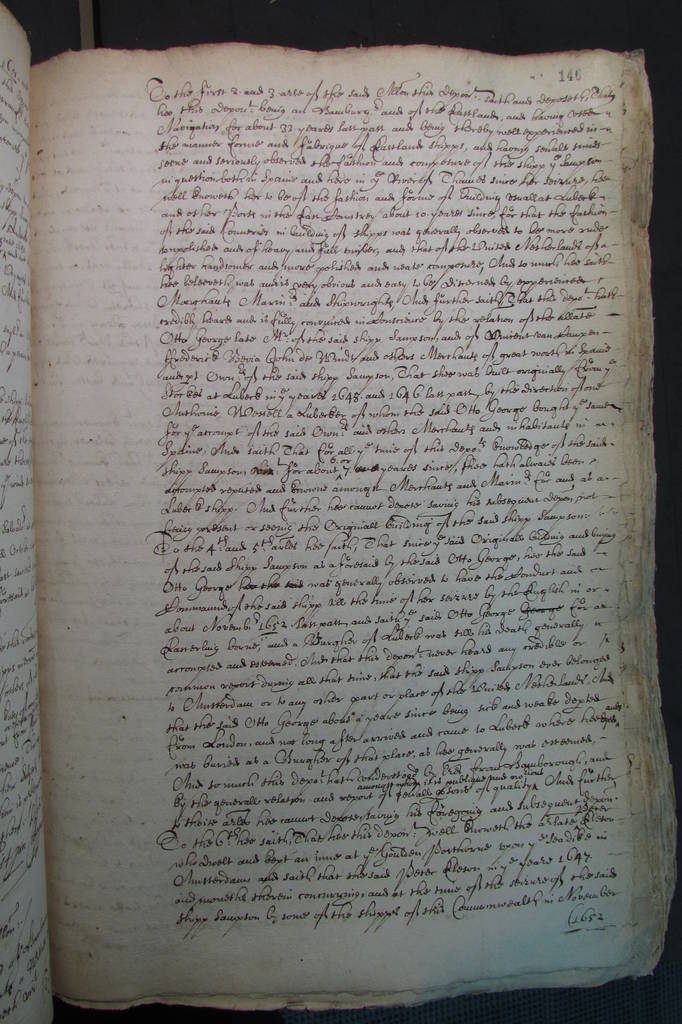 146
To the first 2. and 3 arles of the said Allon this depon.t saith and deposeth, That
hee this depon.t being an Hamburg.r and of the Eastland, and having used
Navigation for about 22 yeares last past and being thereby well experienced in
the manner forme and fabrique of Eastland shipps, and having severall times
seene and seriously observed the fashion and composure of the shipp y.e Sampson
in question both in Spaine and here in y.e River of Thames since her seizure, hee
well knoweth her to be of the fashion and forme of building usuall at Lubeck
and other Ports in the East Countrey about 10. yeares since for that the fashion
of the said Countries in building of shipps was generally observed to be more rude
unpolished and of heavy and full timber, and that of the United Netherlands of a
lighter handsomer and more polished and neate composure, And so much hee saith
hee beleeveth was and is very obvious and easy to be discerned by experienced
Merchants Marin.rs and Shipwrights, And further saith That this depo.t hath
credibly heard and is fully convinced in Conscience by the relation of the allate
Otto George late M.r of the said shipp Sampson, and of Vincent van Campen
Frederick Bevia John de Windt and others Merchants of great worth in Spaine
and pt Own.rs of the said shipp Sampson, That shee was built originally from y.e
Stockes at Lubeck in y.e yeares 1645. and 1646 last past, by the direction of one
Anthonie Wesell a Lubecker of whom the said Otto George bought y.e same
for y.e accompt of the said Own.rs and others Merchants and inhabitants in
Spaine, And saith That for all y.e time of this depo.ts knowledge of the said
shipp Sampson, for about 6. or 7. yeares since, shee hath alwaies been
accompted reputed and knowne amongst Merchants and Marin.rs for and as a
Lubeck shipp. And further hee cannot depose saving his subsequent depon, not
being present or seeing the Originall building of the said shipp Sampson.
To the 4.th and 5.th arles hee saith, That since y.e said Originall building and buying
of the said shipp Sampson as aforesaid by the said Otto George, hee the said
Otto George hee the said was generally observed to have the Conduct and
Command of the said shipp till the time of her seizure by the English in or
about Novemb.r 1652 last past, and saith y.e said Otto George George for an
Easterling borne, and a Burgher of Lubeck was till his death generally
accompted and esteemed, And that this depon.t never heard any credible or
common report during all that time, that the said shipp Sampson ever belonged
to Amsterdam or to any other part or place of the United Netherlands, And
that the said Otto George about a yeare since being sick and weake depted
from London, and not long after arrived and came to Lubeck where hee died and
was buried as a Burgher of that place, as hee generally was esteemed,
And so much this depo.t hath understood by from Hamborough, and
by the generall relation and report of severall psons of quality amongst whom it is publique and notorious And further
to theise arles hee cannot depose, saving his foregoing and subsequent depon.
To the 6.th hee saith, That hee this depon.t well knoweth the arlate Peter Cleton
who dwelt and kept an inne at y.e Goulden Parthorne upon y.e sea dike in
Amsterdam and saith that the said Peter Cleton in y.e yeare 1647.
and moneths therein concurring, and at the time of the seizure of the said
shipp Sampson by some of the shipps of this Commonwealth in November
(1652